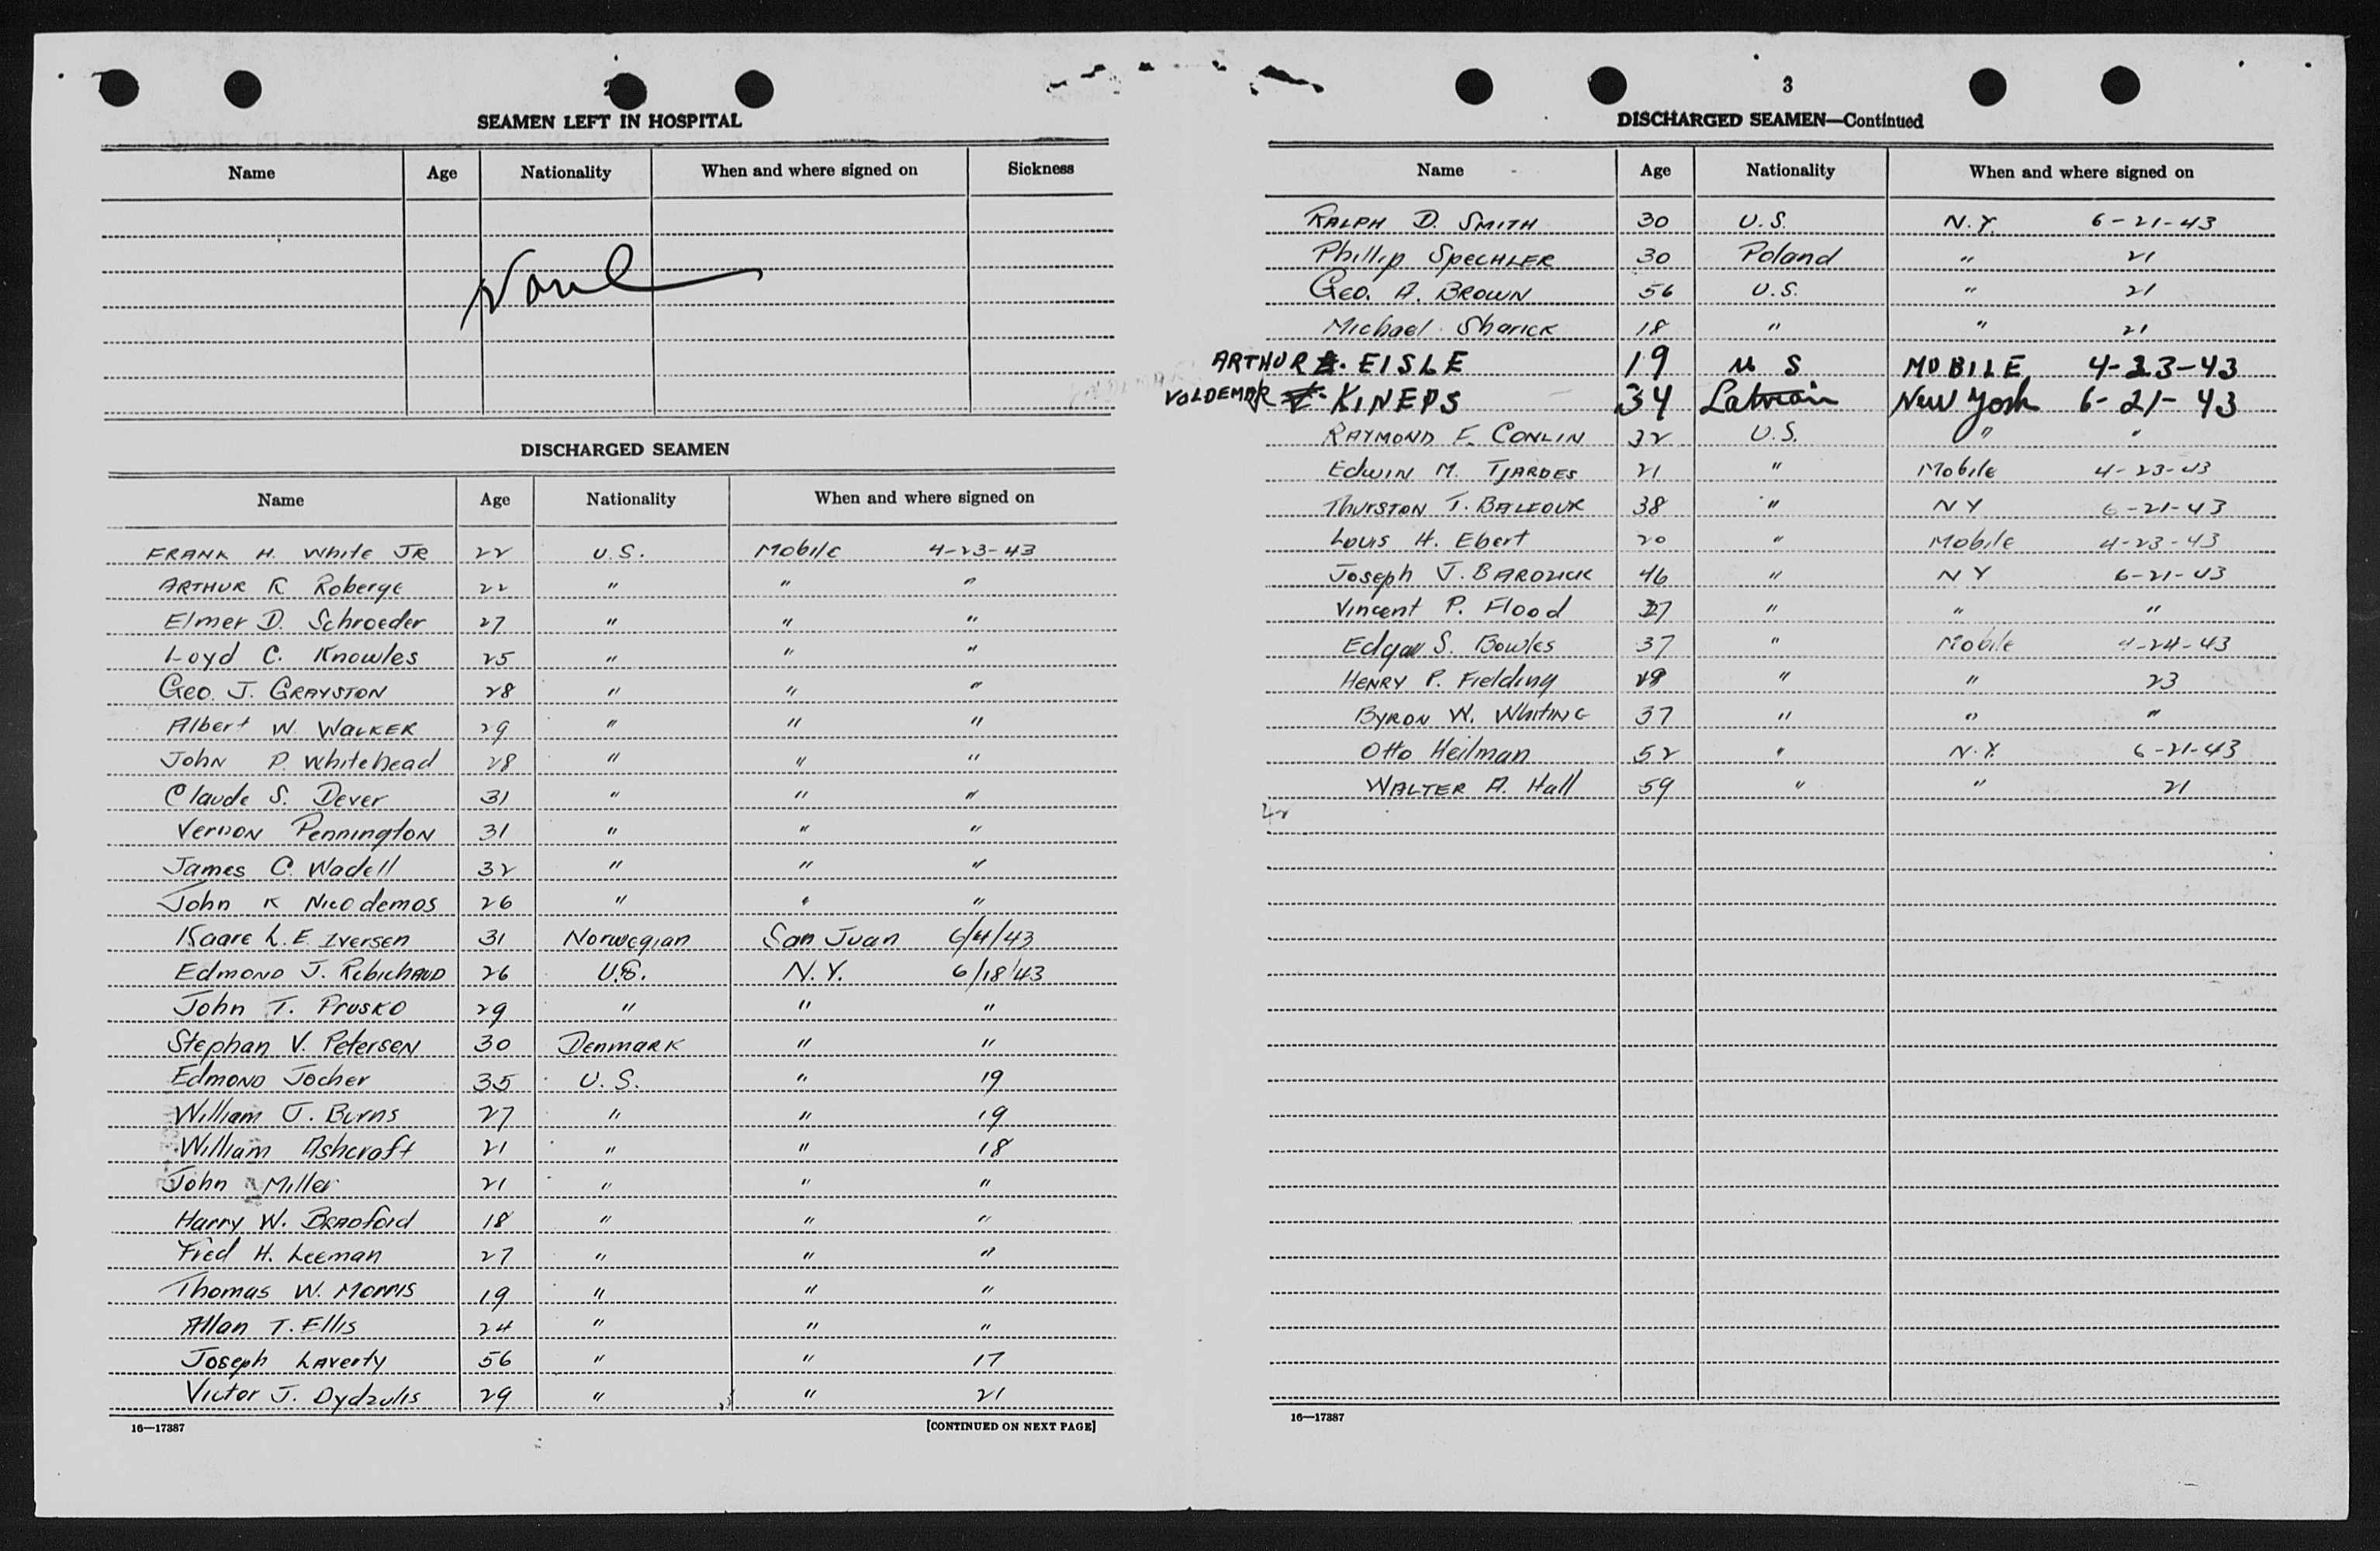 SEAMEN LEFT IN HOSPITAL
Name Age Nationality When and where signed on Sickness
None
DISCHARGED SEAMEN
Name Age Nationality When and where signed on
FRANK H. White JR 22 U.S. Mobile 4-23-43
ARTHUR R Roberge 22 " " "
Elmer D. Schroeder 27 " " "
Loyd C. Knowles 25 " " "
Geo. J. GRAYSTON 28 " " "
Albert W. WALKER 29 " " "
John P. Whitehead 28 " " "
Claude S. Dever 31 " " "
Vernon Pennington 31 " " "
James C. Wadell 32 " " "
John K Nicodemos 26 " " "
Kaare L.E. Iversen 31 Norwegian San Juan 6/4/43
EDMOND J. RobichAUD 26 U.S. N.Y. 6/18/43
John T. Prusko 29 " " "
Stephan V. Petersen 30 Denmark " "
Edmond Jocher 35 U.S. " 19
William J. Burns 27 " " 19
William Ashcraft 21 " " 18
John Miller 21 " " "
Harry W. BRADford 18 " " "
Fred H. Leeman 27 " " "
Thomas W. Morris 19 " " "
Allan T. Ellis 24 " " "
Joseph Laverty 56 " " 17
Victor J. Dydzulis 29 " " 21
16—17387 [CONTINUED ON NEXT PAGE]
3
DISCHARGED SEAMEN—Continued
Name Age Nationality When and where signed on
RALPH D. SMITH 30 U.S. N.Y. 6-21-43
Phillip SpeCHLER 30 Poland " 21
Geo. A. BROWN 56 U.S. " 21
Michael Sharick 18 " " 21
ARTHUR EISLE 19 U S MOBILE 4-23-43
VOLDEMAR KINEPS 34 Latvian New York 6-21-43
RAYMOND F. CONLIN 32 U.S. " "
Edwin M. TJARDES 21 " Mobile 4-23-43
Thurston T. BALFOUR 38 " NY 6-21-43
Louis H. Ebert 20 " Mobile 4-23-43
Joseph J. BAROZICK 46 " NY 6-21-43
Vincent P. Flood 27 " " "
Edgar S. Bowles 37 " Mobile 4-24-43
HENRY P. Fielding " " 23
BYRON W. WhitinG 37 " " "
Otto Heilman 52 " N.Y. 6-21-43
WALTER A. Hall 59 " " 21
42
16—17387